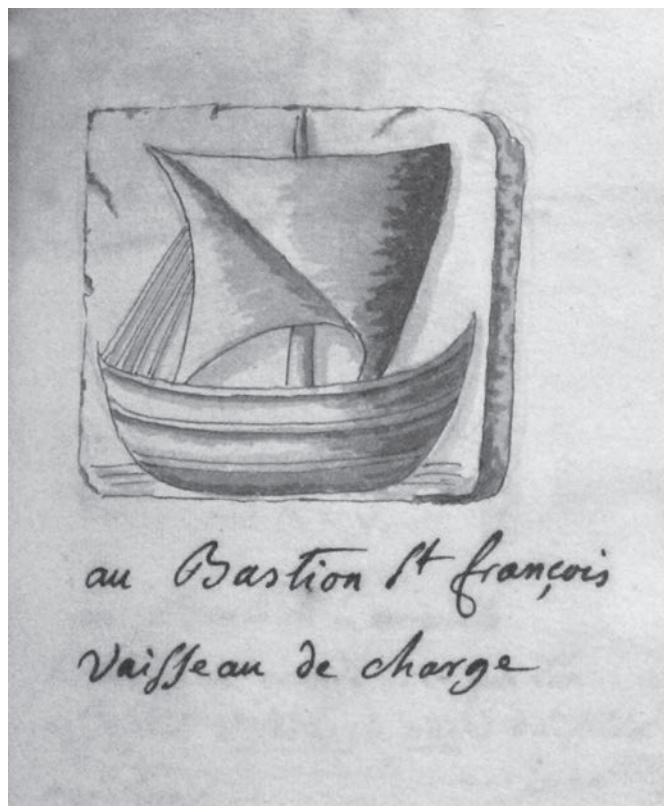 au Bastion St françois
Vaisseau de charge